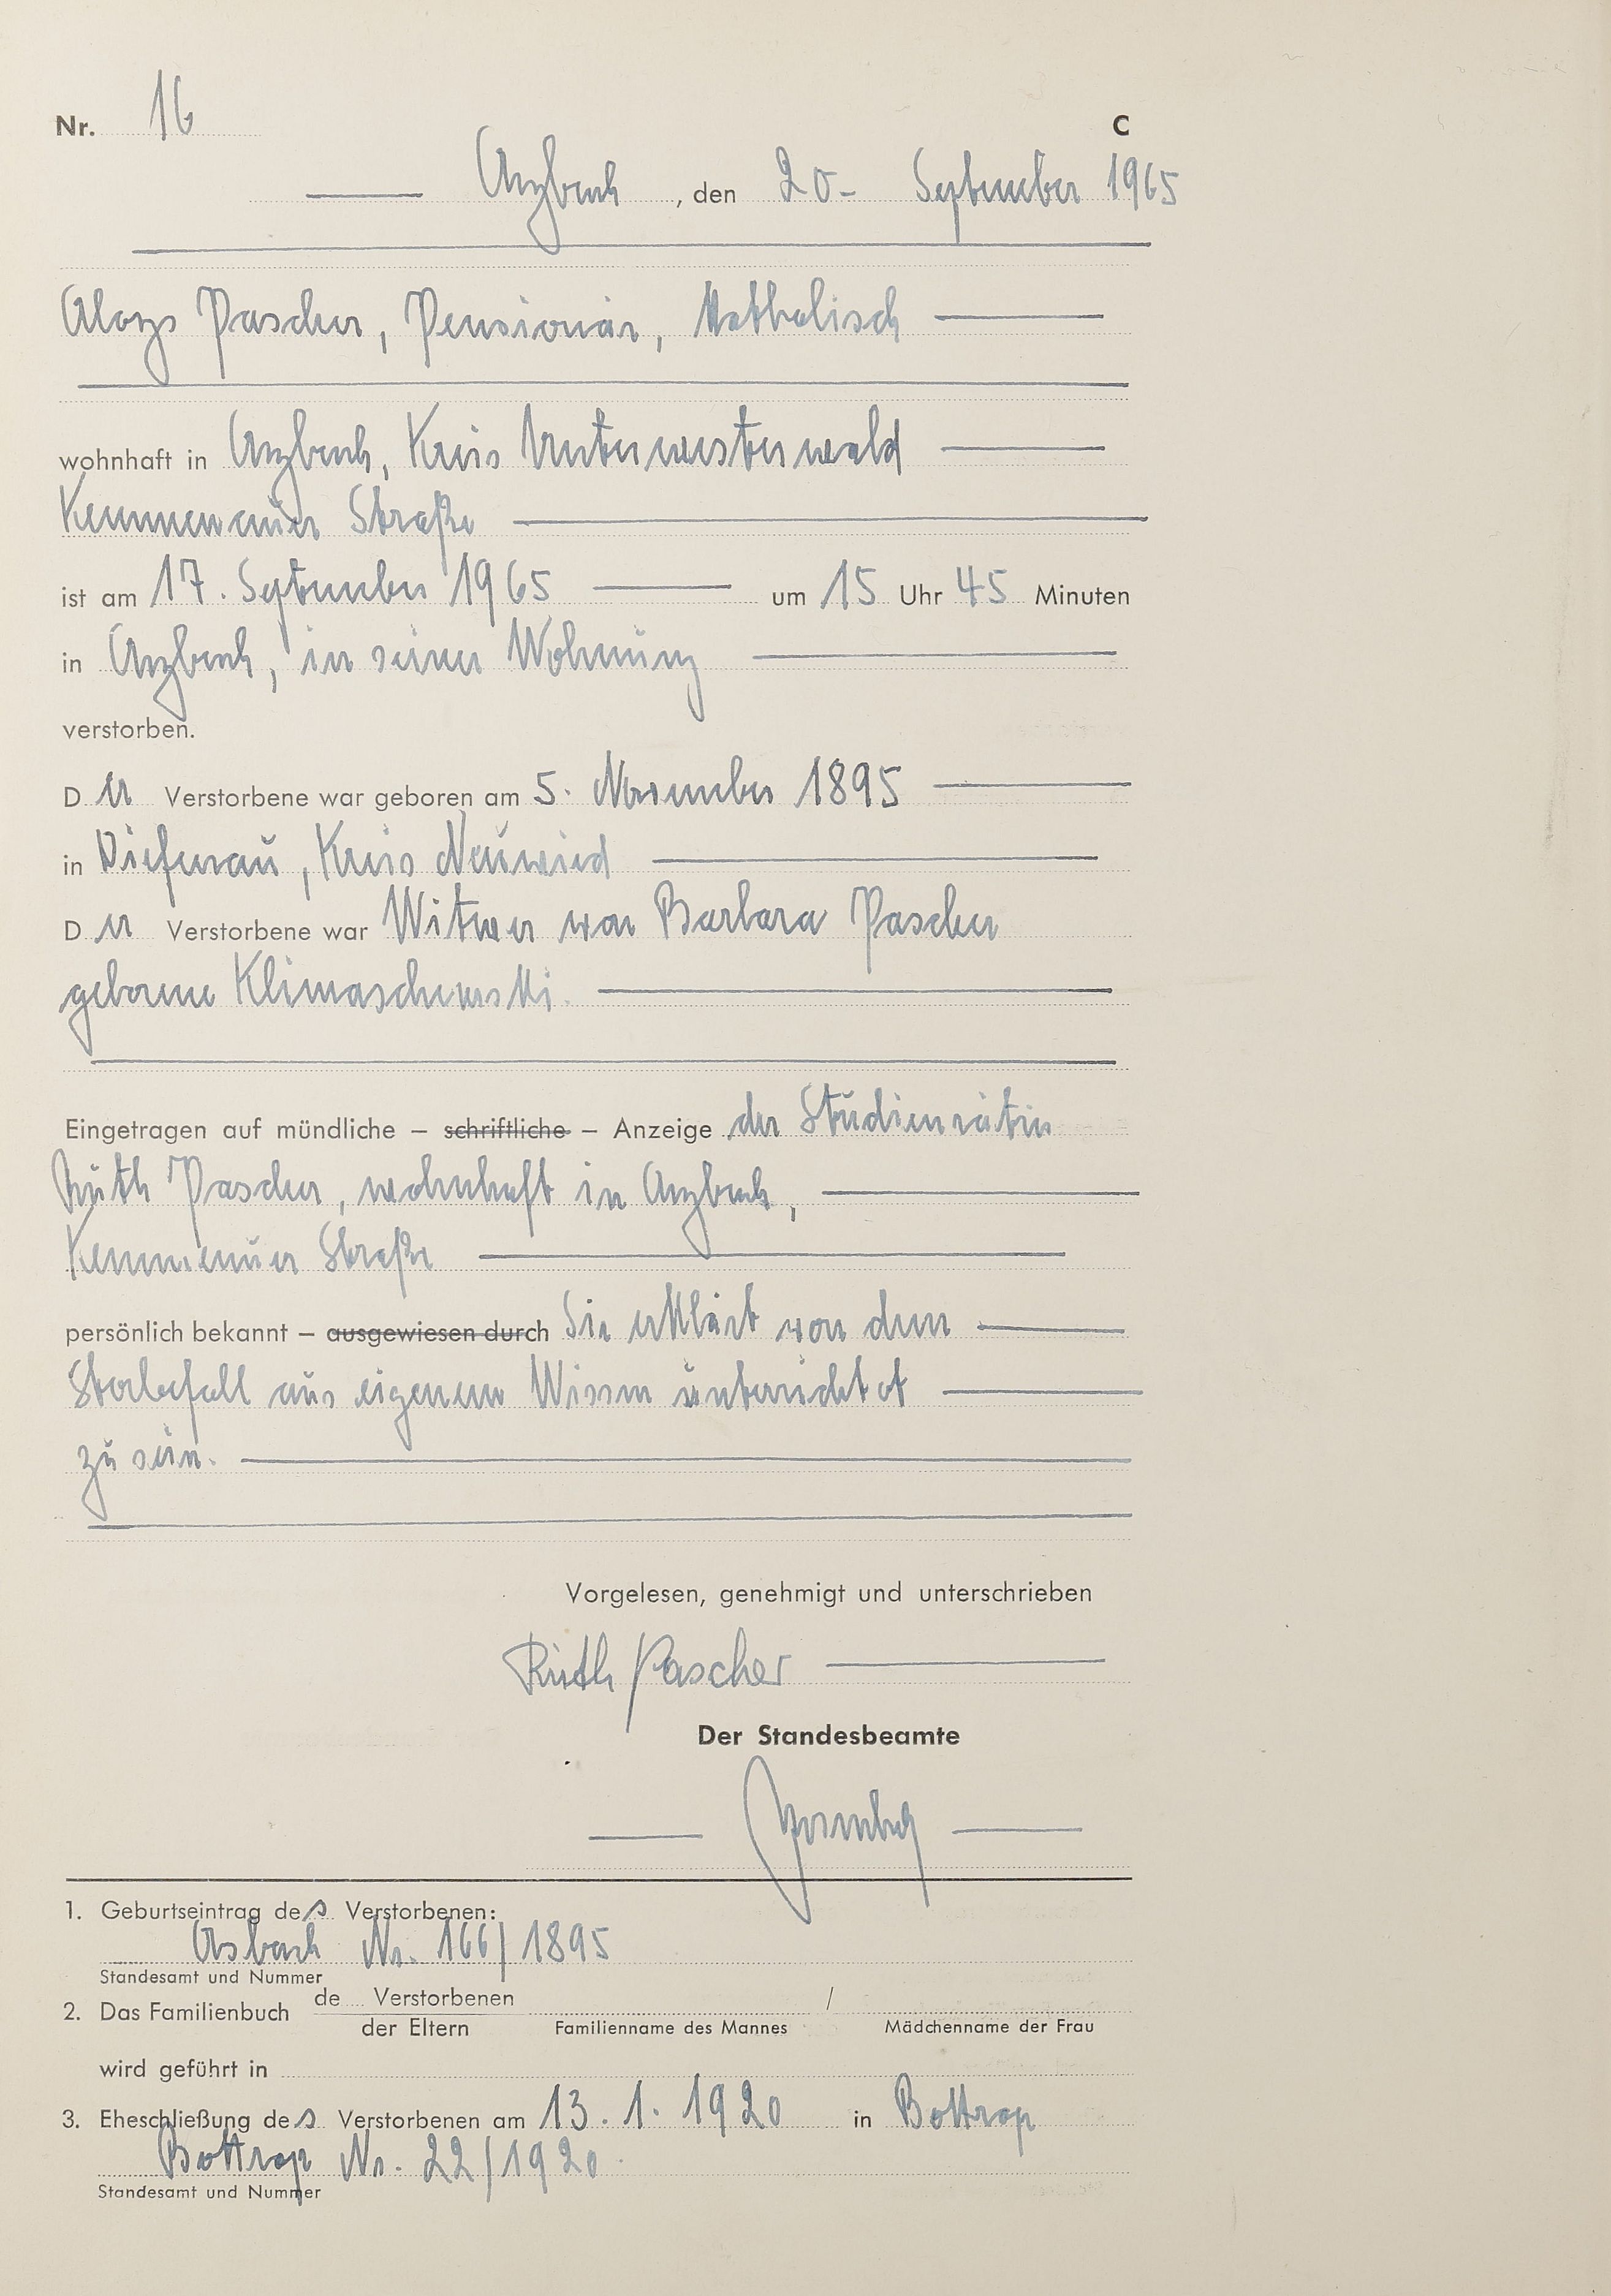 Nr. 16 C
Arzbach, den 20. September 1965
Aloys Pascher, Pensionär, katholisch
wohnhaft in Arzbach, Kreis Unterwesterwald
Kemmenauer Straße
ist am 17. September 1965 um 15 Uhr 45 Minuten
in Arzbach, in seiner Wohnung
verstorben.
Der Verstorbene war geboren am 5. November 1895
in Diefenau, Kreis Neuwied
Der Verstorbene war Witwer von Barbara Pascher
geborene Klimaschewski.
Eingetragen auf mündliche – schriftliche – Anzeige der Studienrätin
Ruth Pascher, wohnhaft in Arzbach,
Kemmenauer Straße
persönlich bekannt – ausgewiesen durch Sie erklärt von dem
Sterbefall aus eigenem Wissen unterrichtet
zu sein.
Vorgelesen, genehmigt und unterschrieben
Ruth Pascher
Der Standesbeamte
1. Geburtseintrag des Verstorbenen:
Asbach Nr. 166/1895
Standesamt und Nummer
2. Das Familienbuch de Verstorbenen /
der Eltern Familienname des Mannes Mädchenname der Frau
wird geführt in
3. Eheschließung des Verstorbenen am 13. 1. 1920 in Bottrop
Bottrop Nr. 22/1920
Standesamt und Nummer